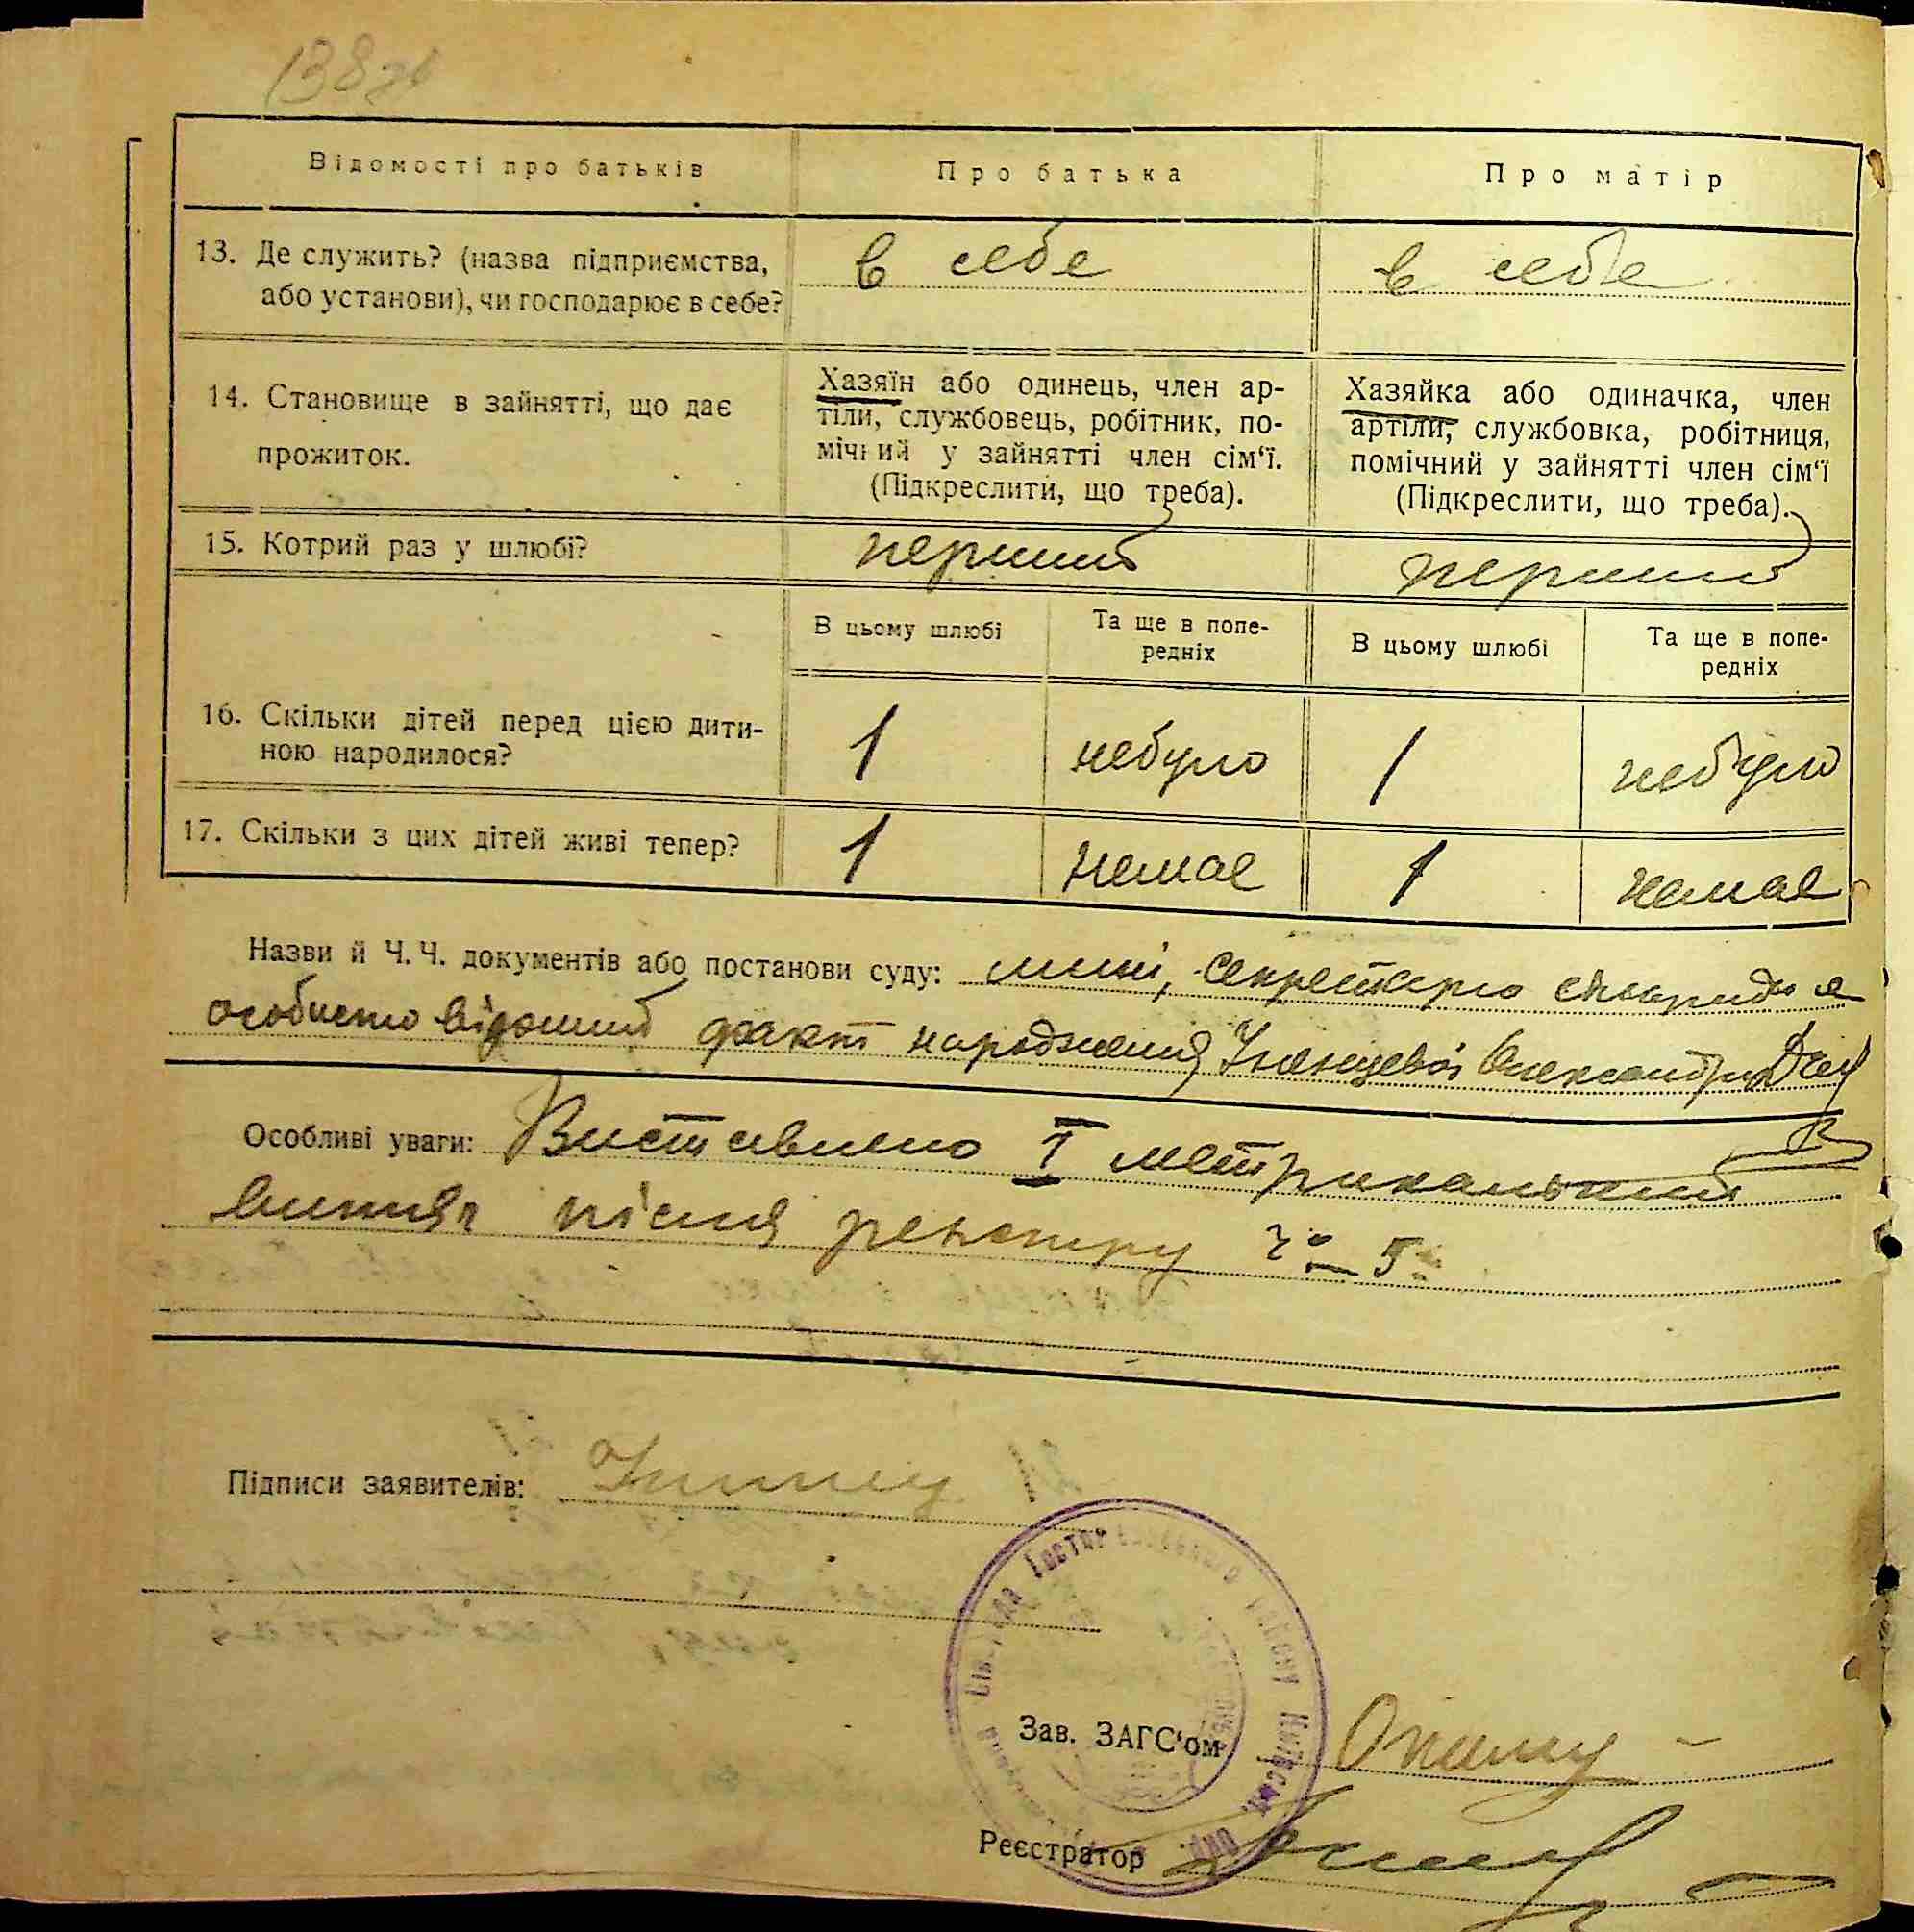 138 зв
Відомості про батьків
Про батька
Про матір
13. Де служить? (назва підприємства,
або установи), чи господарює в себе?
в себе
в себе
14. Становище в зайнятті, що дає
прожиток.
Хазяїн або одинець, член ар-
тіли, службовець, робітник, по-
мічний у зайнятті член сім‘ї.
(Підкреслити, що треба).
Хазяйка або одиначка, член
артіли, службовка, робітниця,
помічний у зайнятті член сім‘ї
(Підкреслити, що треба).
15. Котрий раз у шлюбі?
перший
перший
В цьому шлюбі
Та ще в попе-
редніх
В цьому шлюбі
Та ще в попе-
редніх
16. Скільки дітей перед цією дити-
ною народилося?
1
небуло
1
небуло
17. Скільки з цих дітей живі тепер?
1
немає
1
немає
Назви й Ч. Ч. документів або постанови суду: мені, секретарю сільради
особисто відомий факт народження Олександри
Особливі уваги: Виставлено I метрикальний
витяг після реєстру 5
Підписи заявителів:
Зав. ЗАГС‘ом
Реєстратор